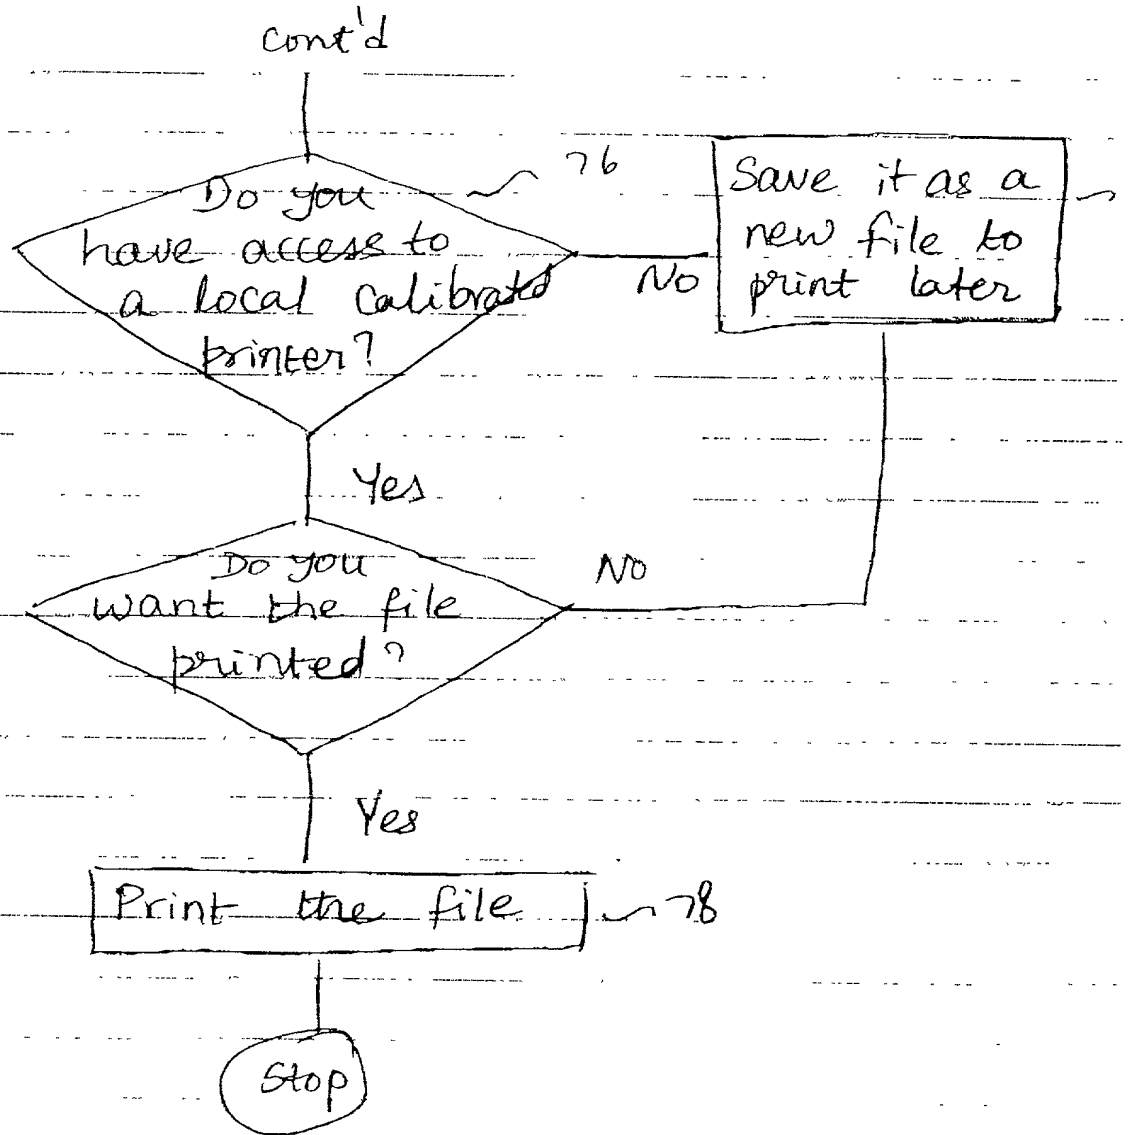 Cont'd
Do you
have access to
a local calibrated
printer?
76
No
Save it as a
new file to
print later
Yes
Do you
want the file
printed?
No
Yes
Print the file
78
Stop